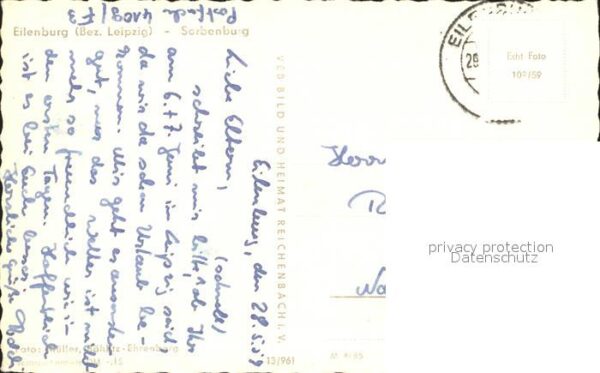 Eilenburg (Bez. Leipzig) - Sorbenburg
Postfach 4103/F3
Eilenburg, den 28.5.59
Liebe Eltern,
(schnell)
schreibt mir bitte, ob Ihr
am 6.+7. Juni in Leipzig seid
da wir da schon Urlaub be-
kommen. Mir geht es ansonsten
gut, nur das Wetter ist nicht
mehr so freundlich wie in
den ersten Tagen. Hoffentlich
ist es bei Euch besser.
Herzliche Grüße
VEB BILD UND HEIMAT REICHENBACH I. V.
15/961
EILENBURG
28
Echt Foto
Herr
privacy protection
Datenschutz